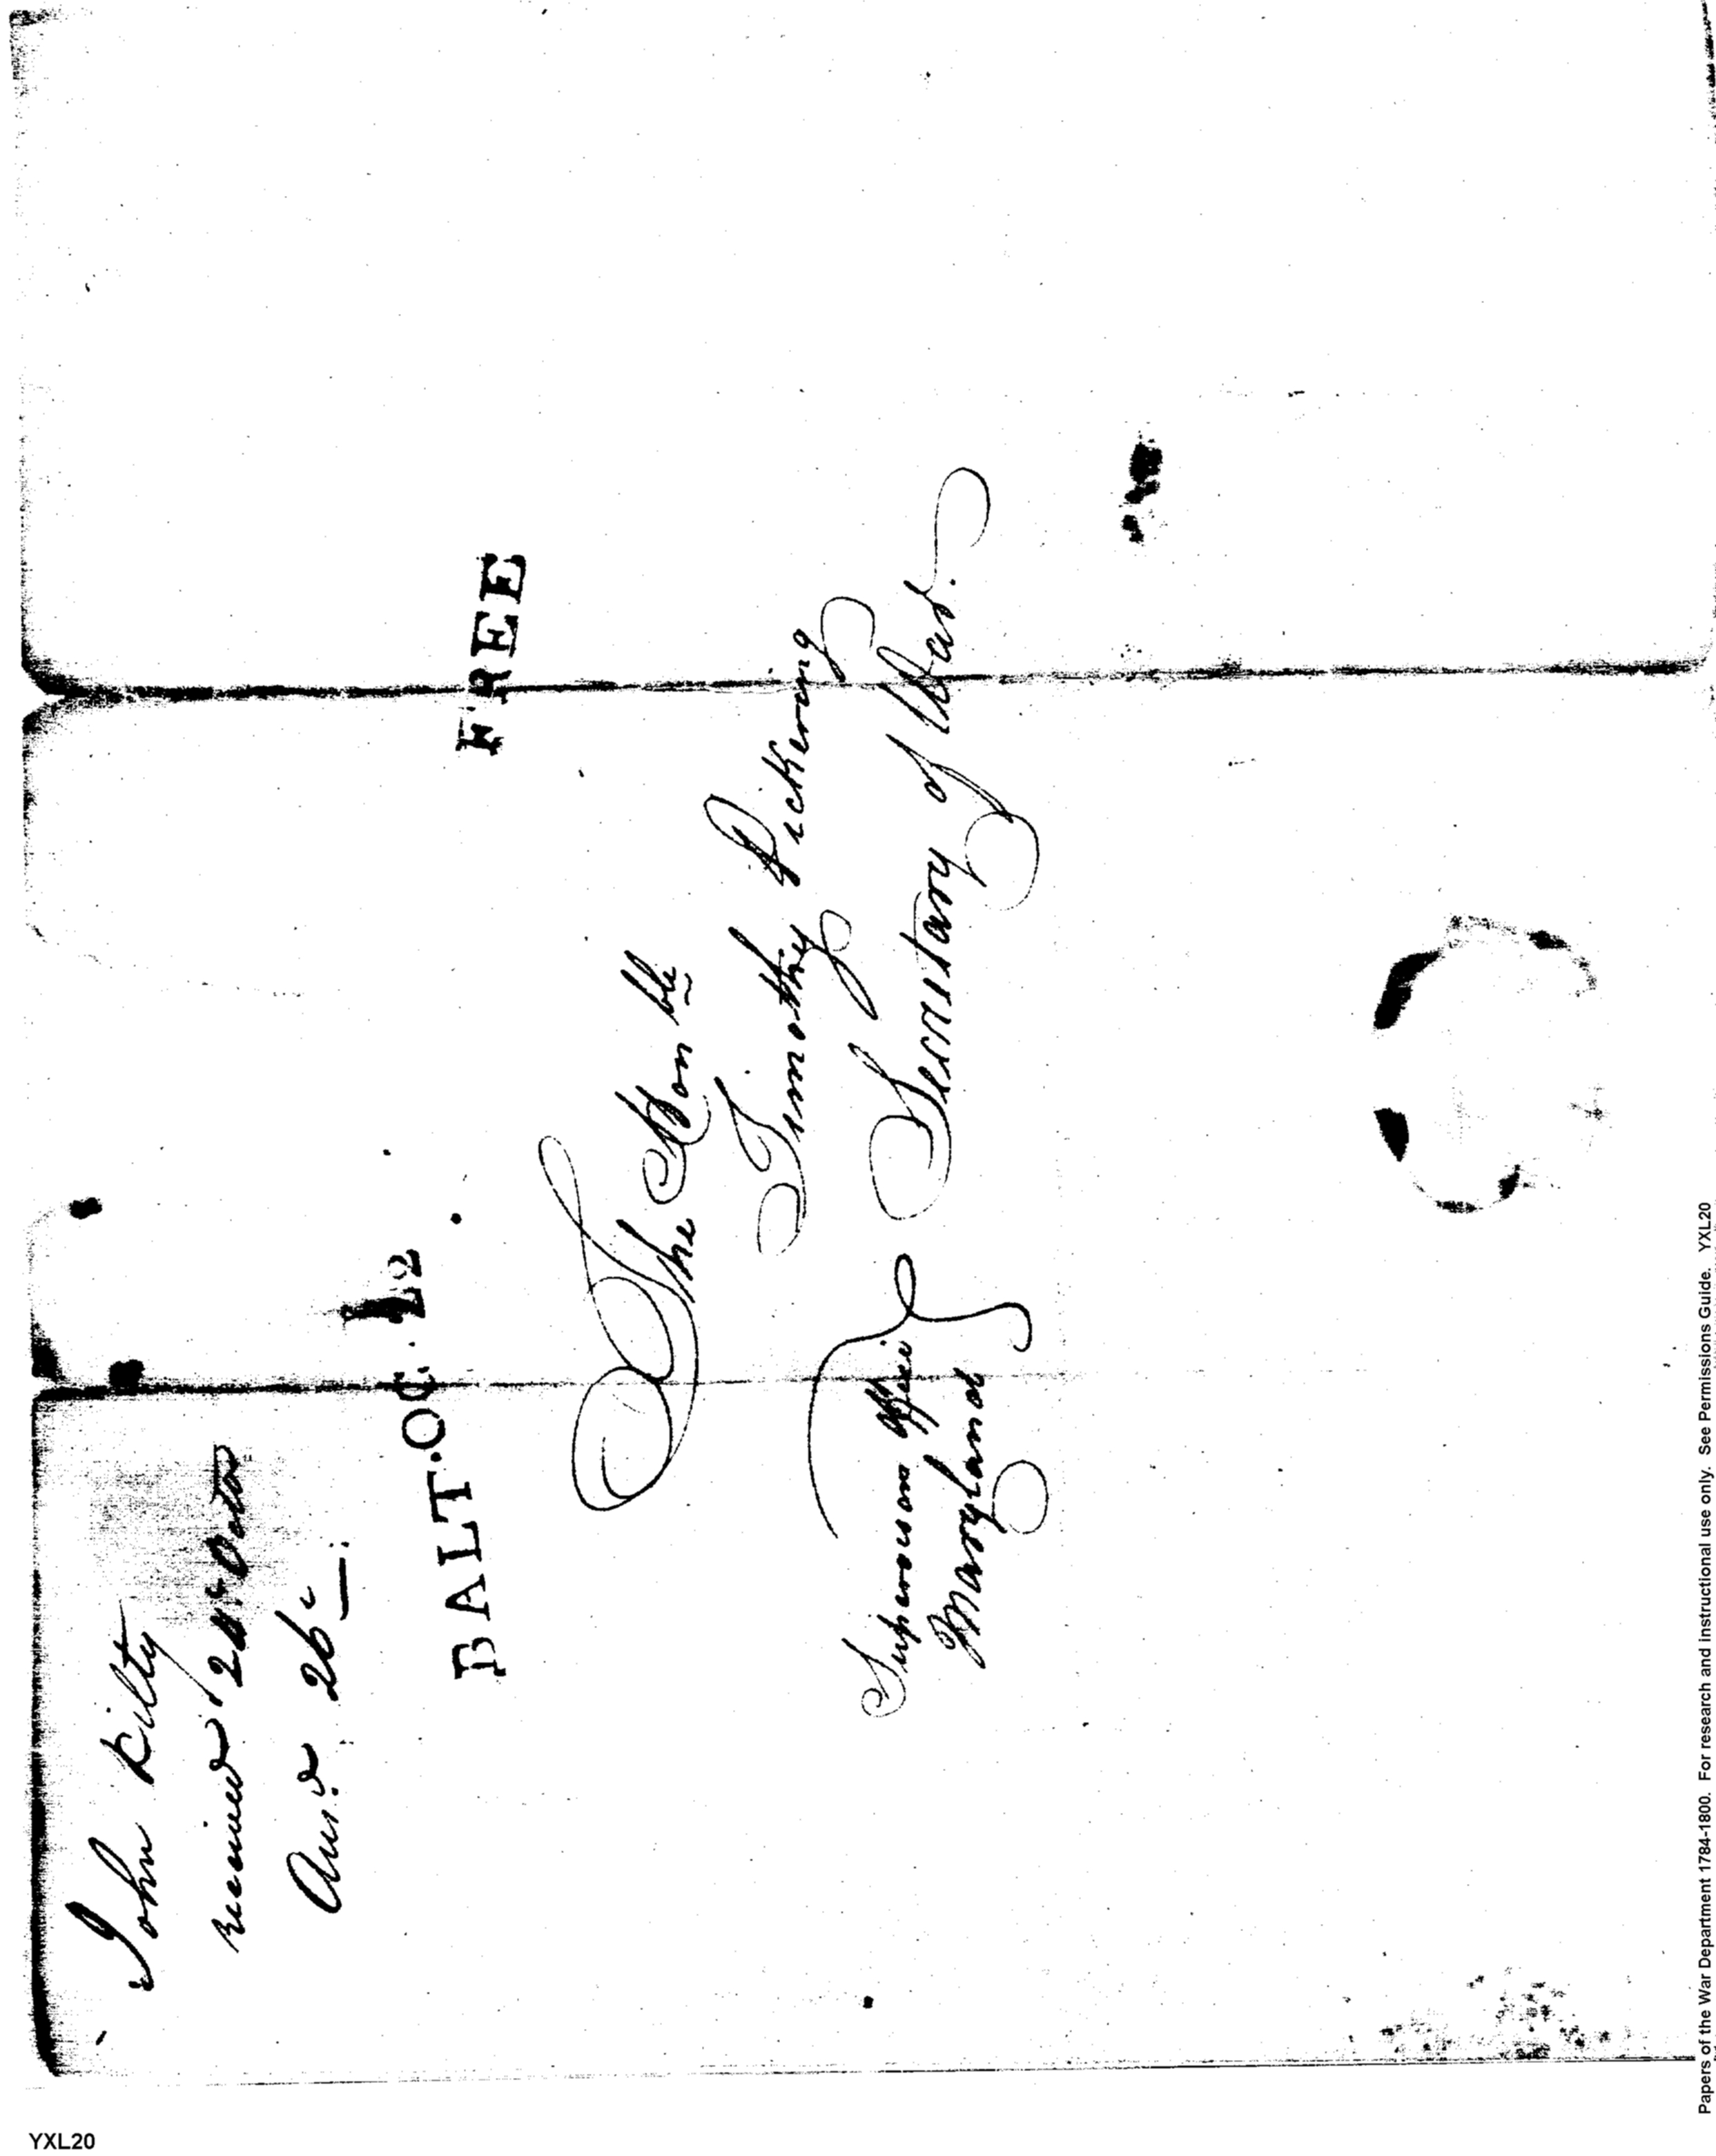 John Kilty
received Octo
Ans.d 26th
BALT. OC. 12
FREE
The Honble
Timothy Pickering
Secretary of War.
Supervisors Office
Maryland
Papers of the War Department 1784-1800. For research and instructional use only. See Permissions Guide. YXL20
YXL20